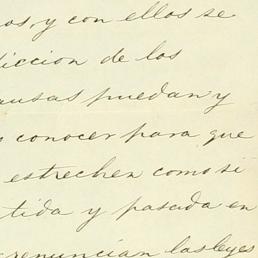 os, y con ellos se
diccion de los
ausas puedan y
conocer para que
estrechen como si
tida y pasada en
renuncian las leyes